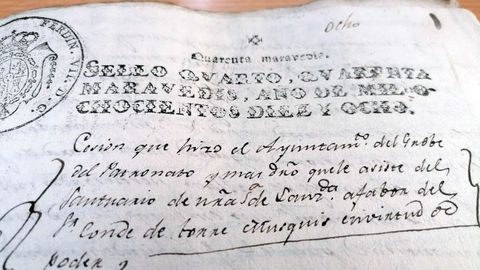 Ocho
FERDIN. VII. D. G.
Quarenta maravedis.
SELLO QVARTO, QVARENTA
MARAVEDIS, AÑO DE MIL O-
CHOCIENTOS DIEZ Y OCHO.
Cesion que hizo el Ayuntamto. del Grobe
del Patronato y mas dro quele asiste del
Santuario de nña Sa. de Lanzda. afabor del
Sr. Conde de torre Musquis envirtud de
poder